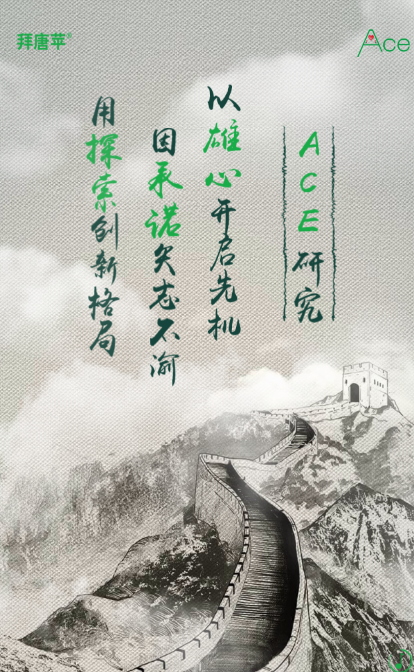 拜唐苹®
Ace
ACE研究
以雄心开启先机
因承诺矢志不渝
用探索创新格局